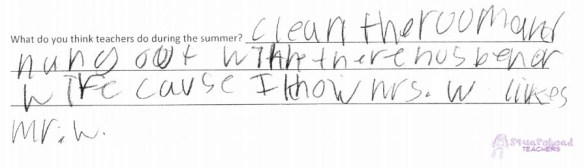 What do you think teachers do during the summer? Clean the room and
hung oot with there husbender
wife cause I know Mrs. W likes
Mr. W.
Squarehead
TEACHERS